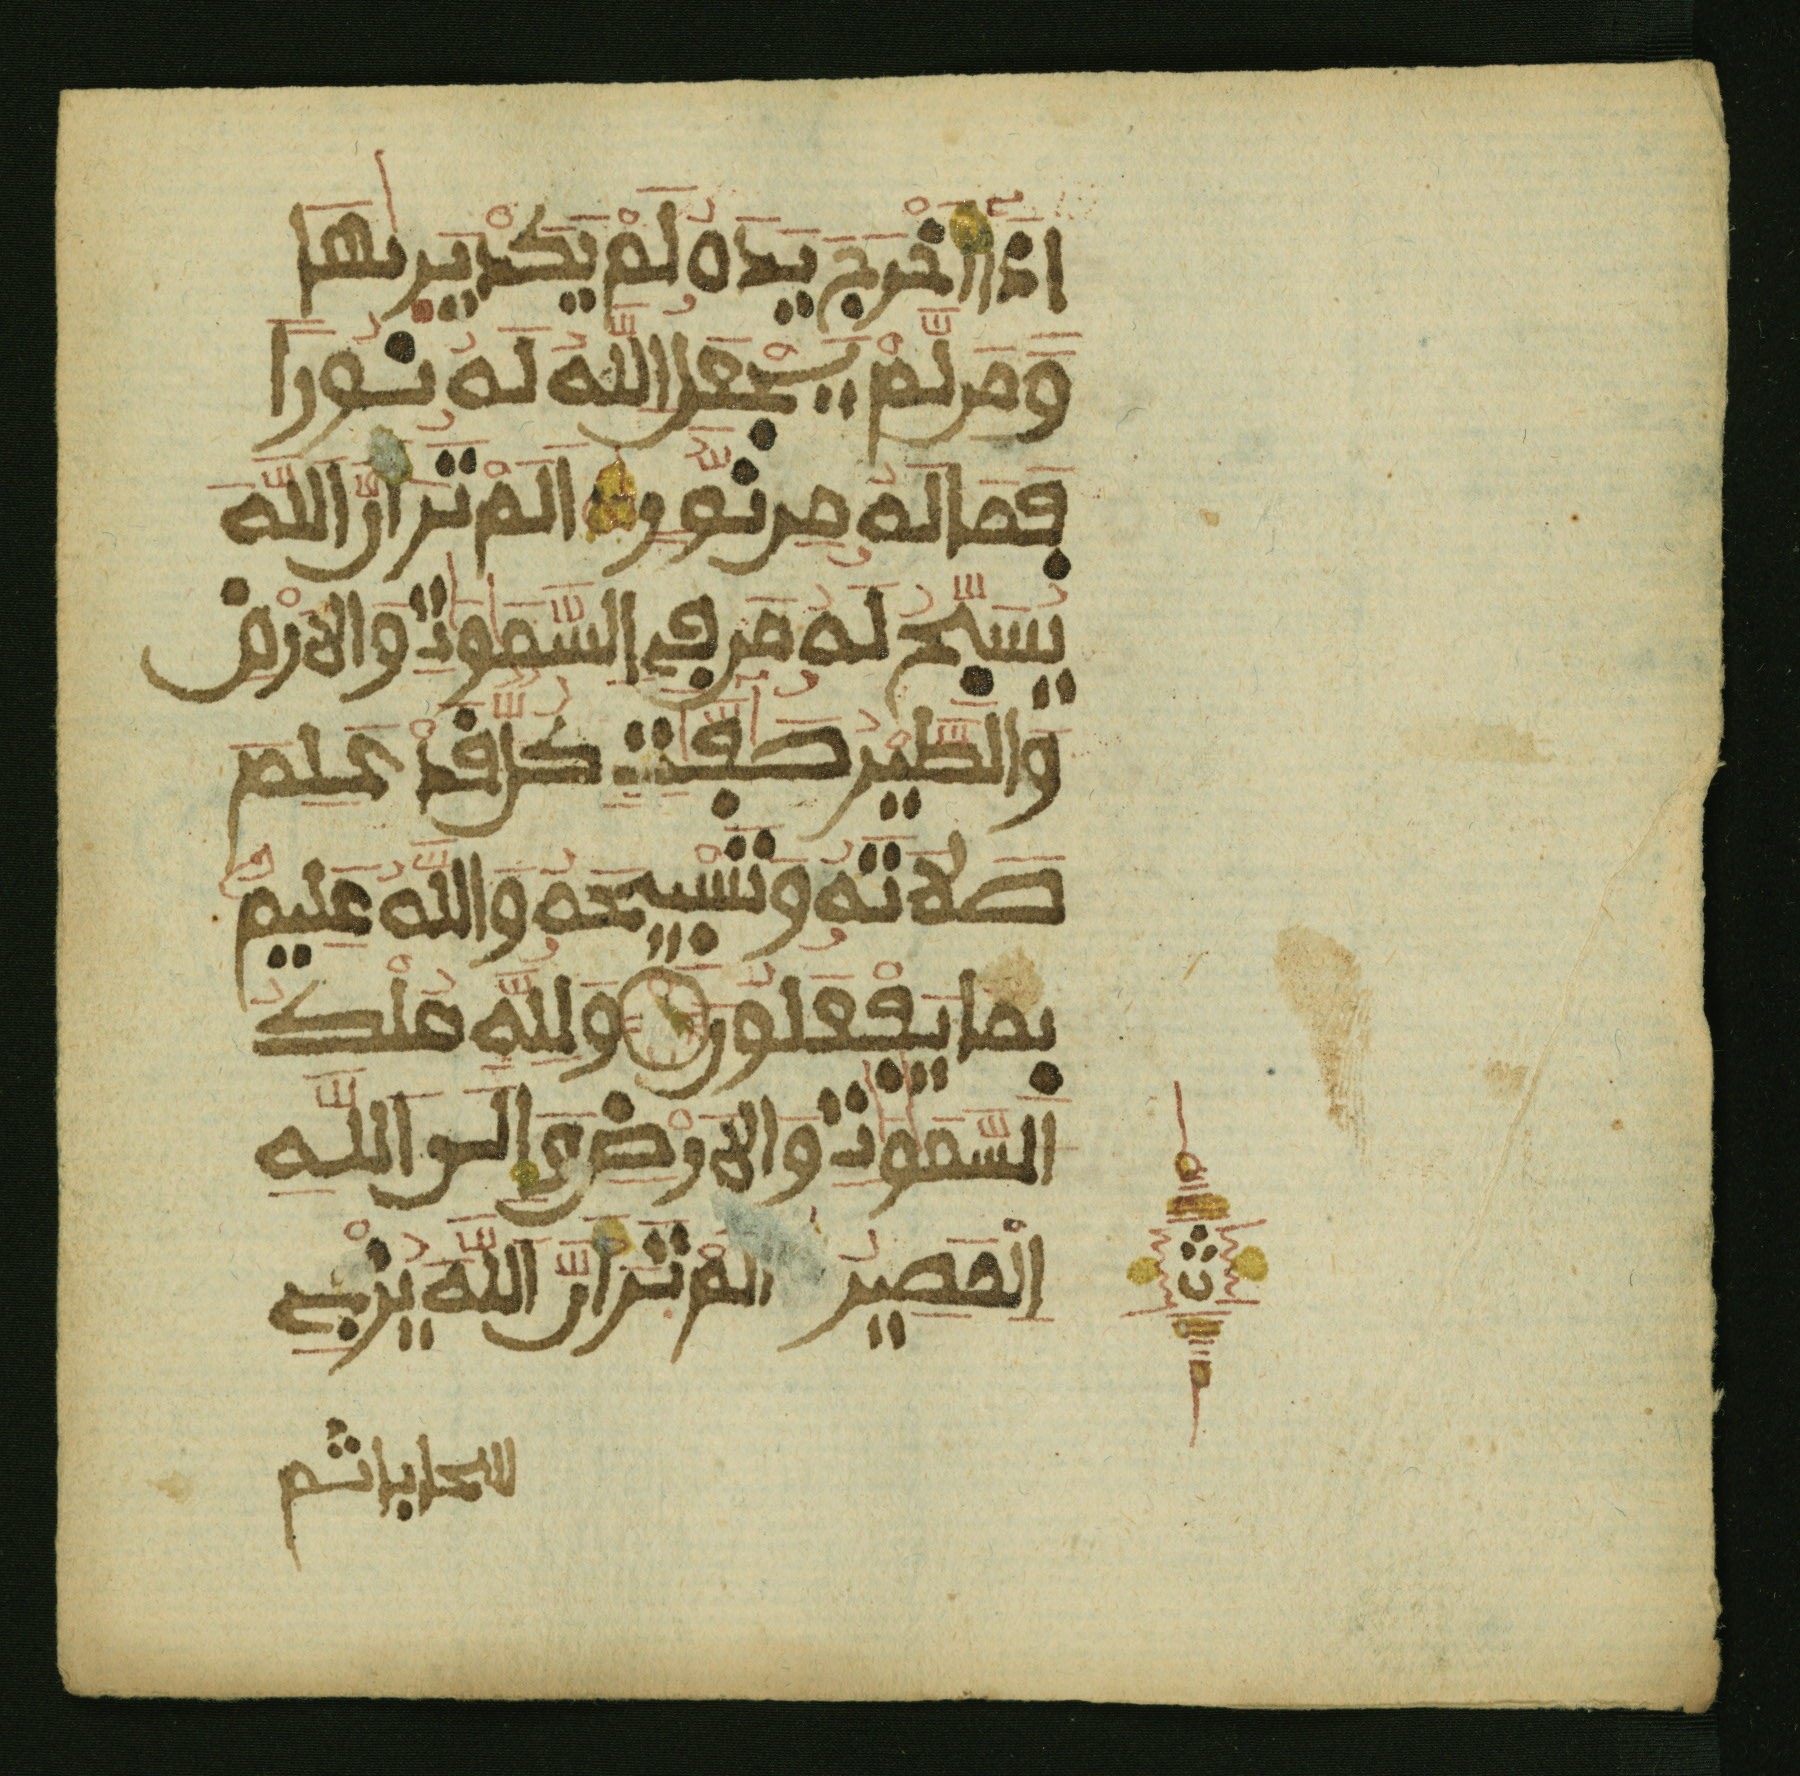 اذَآ أَخْرَجَ يَدَهُۥ لَمْ يَكَدْ يَرىٰهَا
وَمَن لَّمْ يَجْعَلِ اللَّهُ لَهُۥ نُورًا
فَمَا لَهُۥ مِن نُّورٍ اَلَمْ تَرَ أَنَّ اللَّهَ
يُسَبِّحُ لَهُۥ مَن فِے اِلسَّمَٰوَٰتِ وَالَارْضِ
وَالطَّيْرُ صَٰٓفَّٰتٖ كُلّٞ قَدْ عَلِمَ
صَلَاتَهُۥ وَتَسْبِيحَهُۥ وَاللَّهُ عَلِيمُۢ
بِمَا يَفْعَلُونَ وَلِلَّهِ مُلْكُ
اَلسَّمَٰوَٰتِ وَالَارْضِ وَإِلَى اَللَّهِ
اِلْمَصِيرُ أَلَمْ تَرَ أَنَّ اللَّهَ يُزْجِے
ث
سحابا ثم